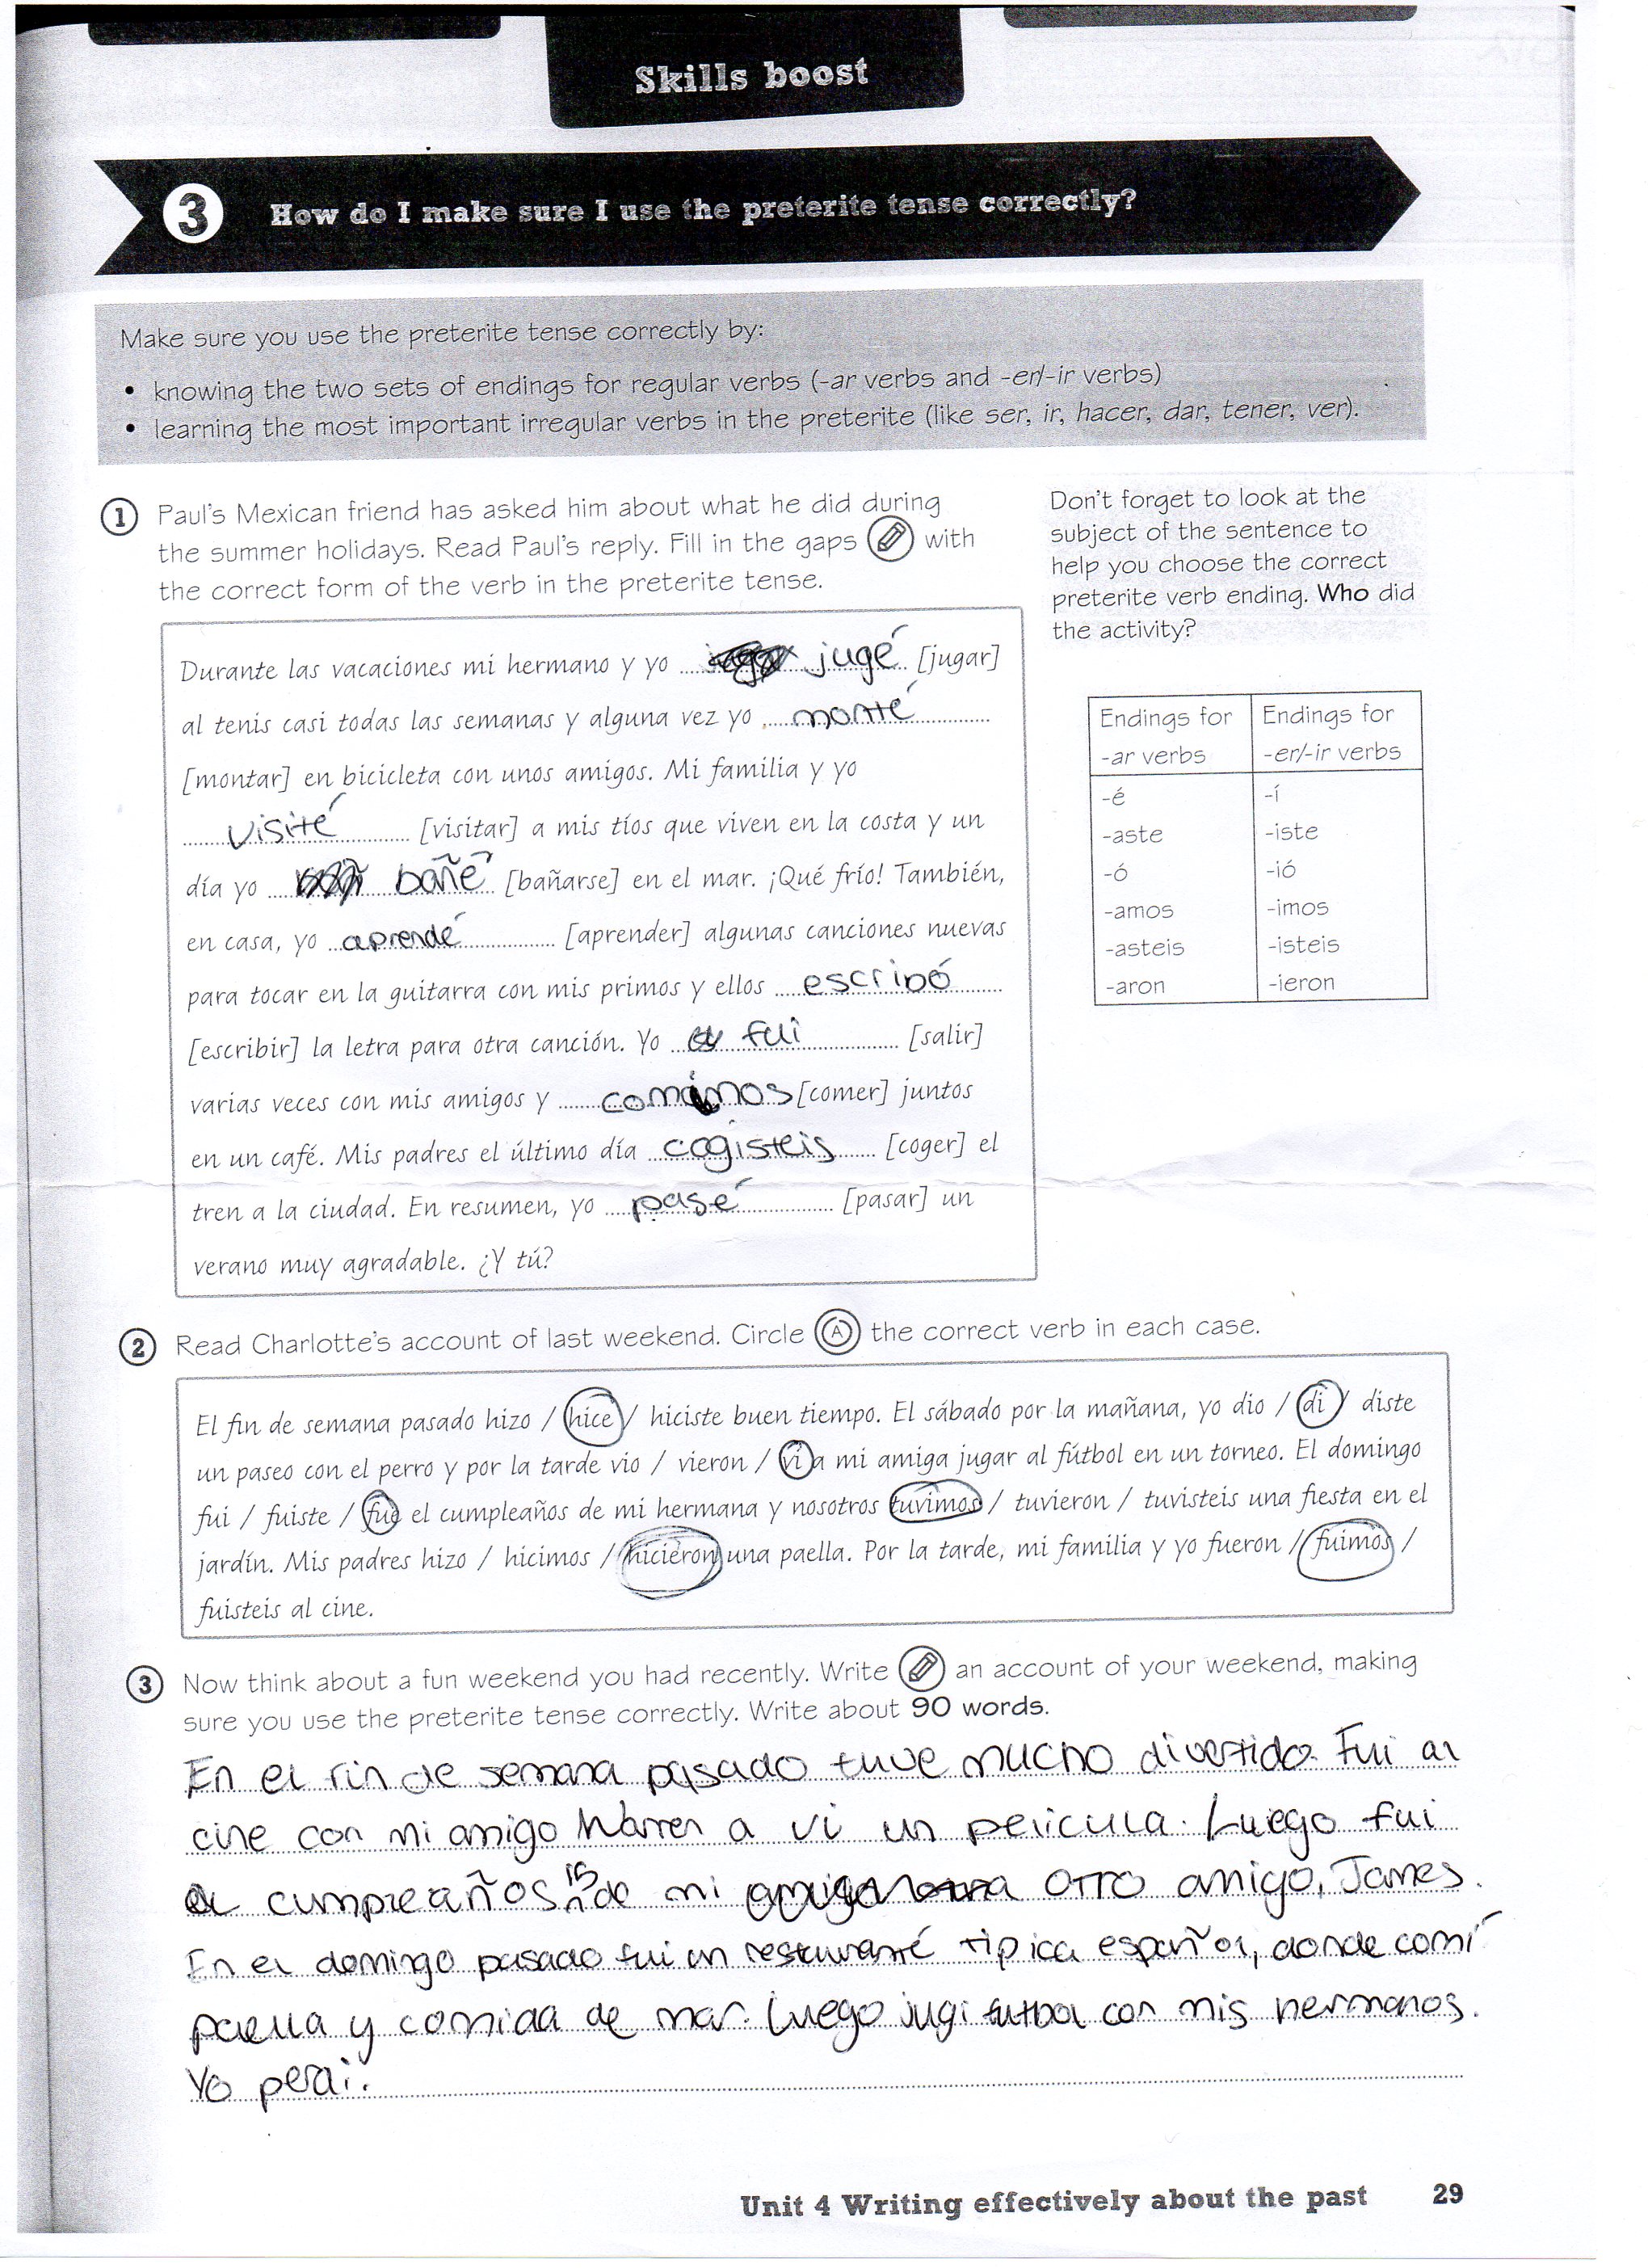 Skills boost
3 How do I make sure I use the preterite tense correctly?
Make sure you use the preterite tense correctly by:
• knowing the two sets of endings for regular verbs (-ar verbs and -er/-ir verbs)
• learning the most important irregular verbs in the preterite (like ser, ir, hacer, dar, tener, ver).
1 Paul's Mexican friend has asked him about what he did during
the summer holidays. Read Paul's reply. Fill in the gaps with
the correct form of the verb in the preterite tense.
Don't forget to look at the
subject of the sentence to
help you choose the correct
preterite verb ending. Who did
the activity?
Durante las vacaciones mi hermano y yo jugé [jugar]
al tenis casi todas las semanas y alguna vez yo monté
[montar] en bicicleta con unos amigos. Mi familia y yo
visité [visitar] a mis tíos que viven en la costa y un
día yo bañé [bañarse] en el mar. ¡Qué frío! También,
en casa, yo aprendé [aprender] algunas canciones nuevas
para tocar en la guitarra con mis primos y ellos escribó
[escribir] la letra para otra canción. Yo fui [salir]
varias veces con mis amigos y comimos [comer] juntos
en un café. Mis padres el último día cogisteis [coger] el
tren a la ciudad. En resumen, yo pasé [pasar] un
verano muy agradable. ¿Y tú?
Endings for -ar verbs | Endings for -er/-ir verbs
-é | -í
-aste | -iste
-ó | -ió
-amos | -imos
-asteis | -isteis
-aron | -ieron
2 Read Charlotte's account of last weekend. Circle A the correct verb in each case.
El fin de semana pasado hizo / hice / hiciste buen tiempo. El sábado por la mañana, yo dio / di / diste
un paseo con el perro y por la tarde vio / vieron / vi a mi amiga jugar al fútbol en un torneo. El domingo
fui / fuiste / fue el cumpleaños de mi hermana y nosotros tuvimos / tuvieron / tuvisteis una fiesta en el
jardín. Mis padres hizo / hicimos / hicieron una paella. Por la tarde, mi familia y yo fueron / fuimos /
fuisteis al cine.
3 Now think about a fun weekend you had recently. Write an account of your weekend, making
sure you use the preterite tense correctly. Write about 90 words.
En el fin de semana pasado tuve mucho divertido. Fui al
cine con mi amigo Warren a vi un pelicula. Luego fui
cumpleaños 15 de mi otro amigo, James.
En el domingo pasado fui un restauranté tipica español, donde comí
paella y comida de mar. Luego jugi futbol con mis hermanos.
Yo perdi.
Unit 4 Writing effectively about the past 29